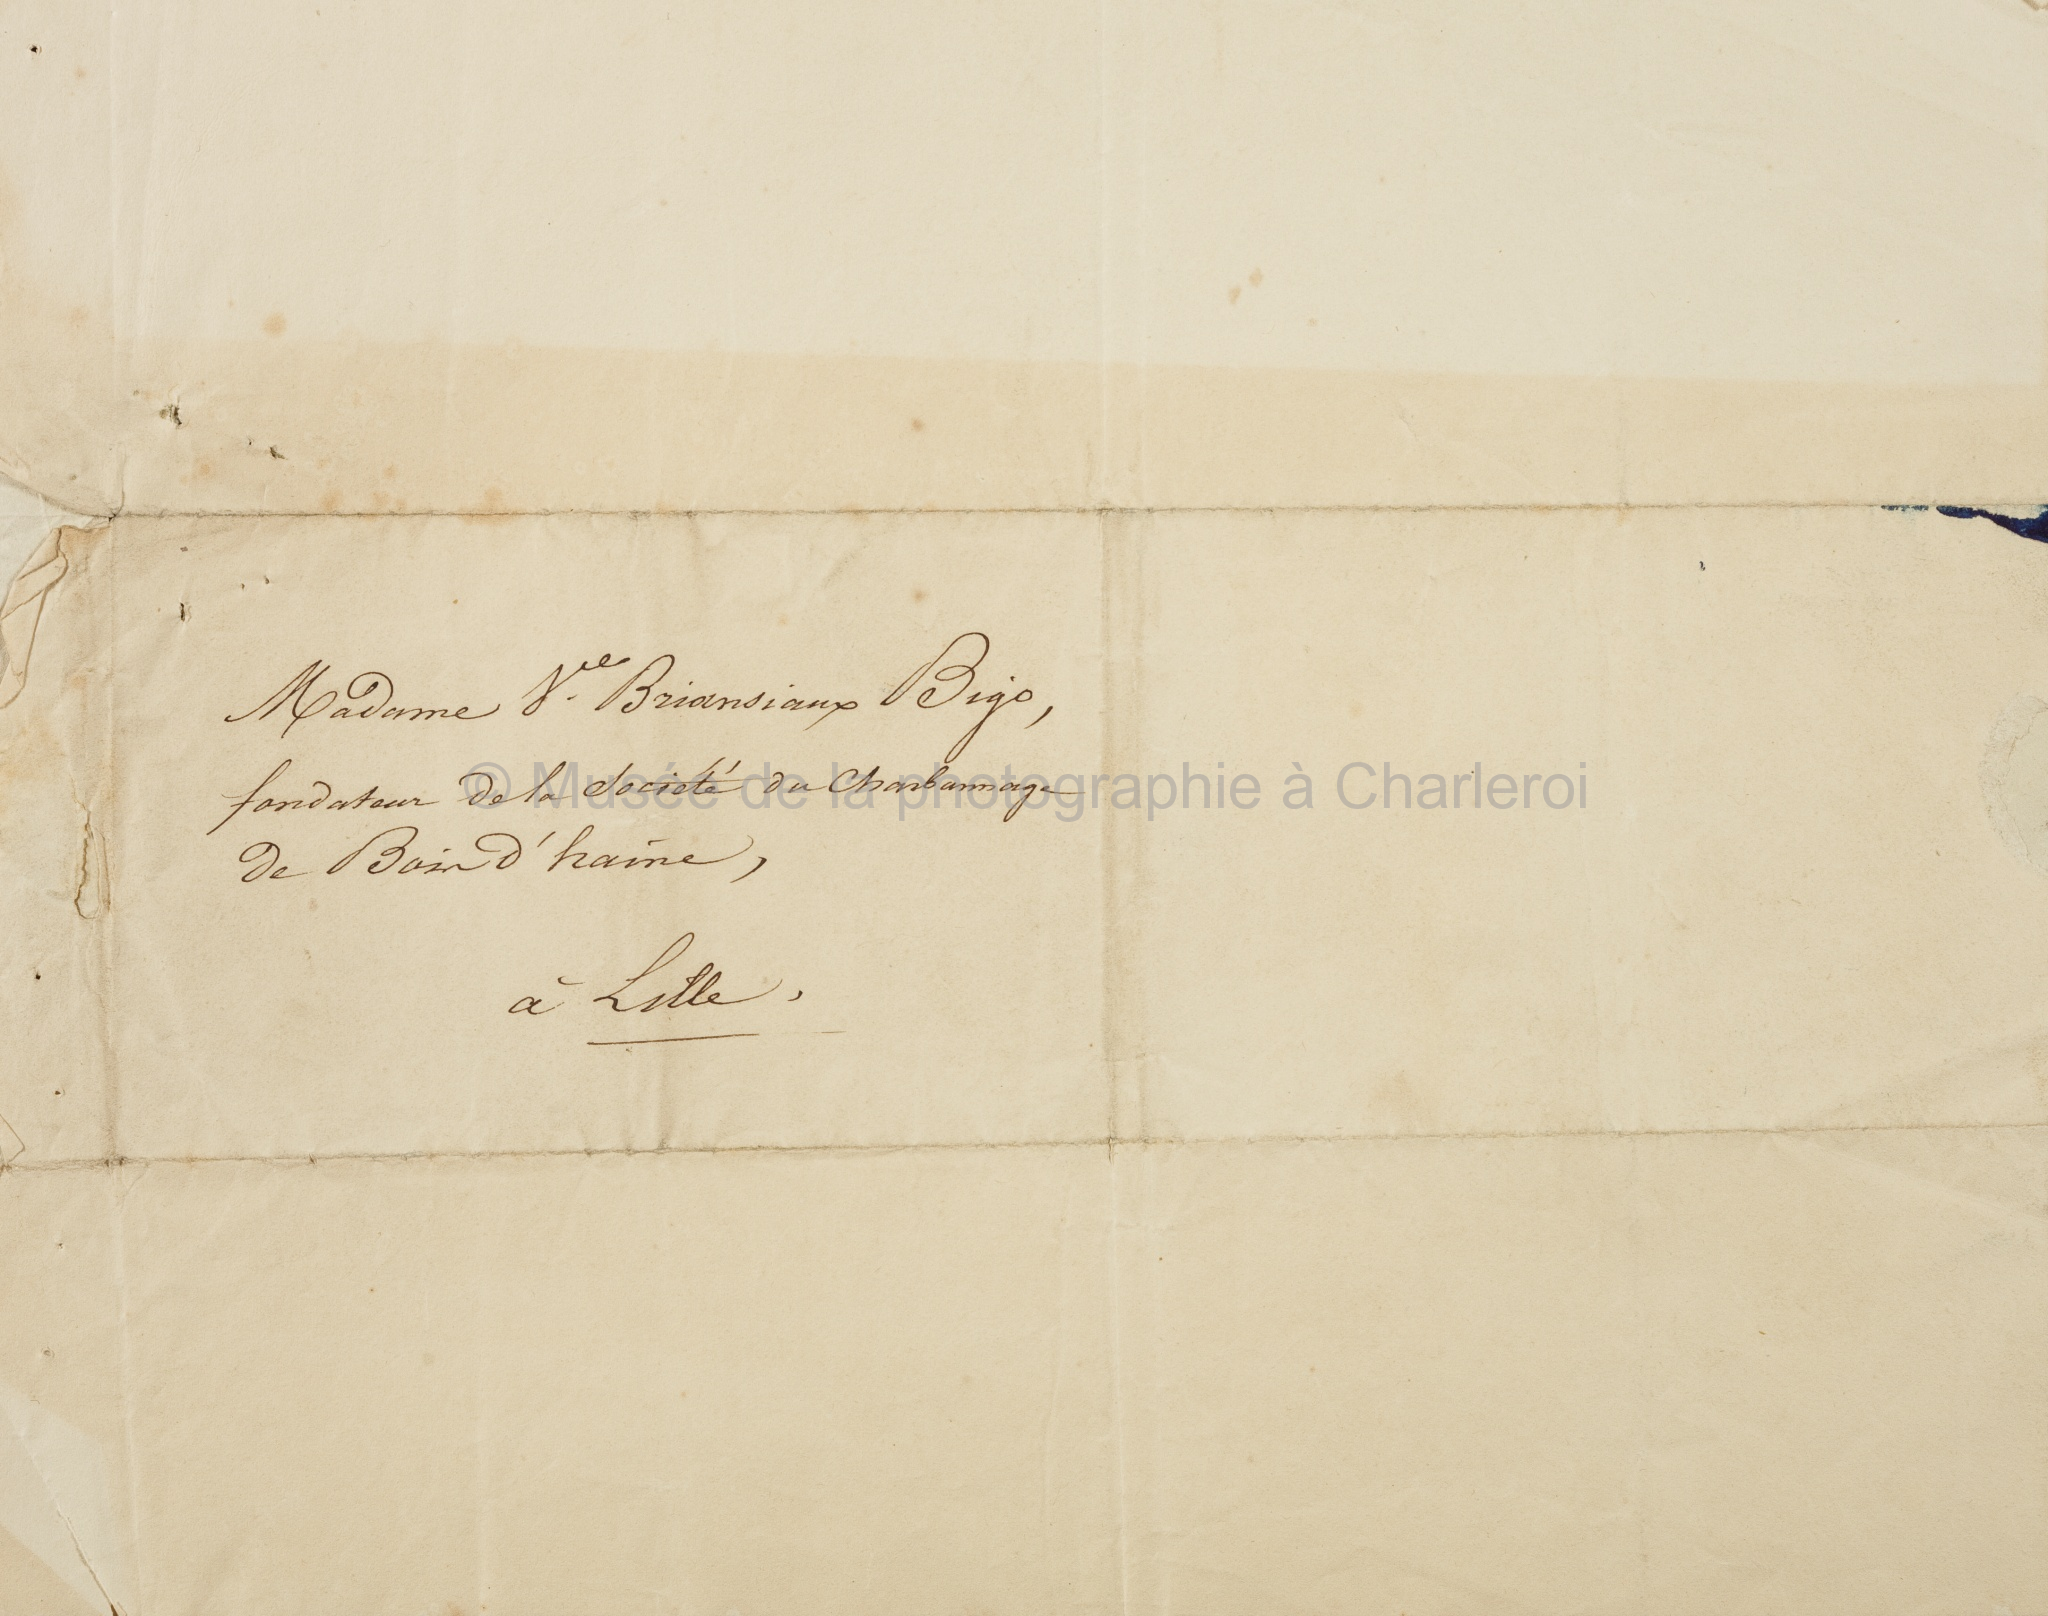 Madame Vve Briansiaux Bigo,
fondateur de la Societé du Charbonnage
© Musée de la photographie à Charleroi
de Bois d'haine,
à Lille,